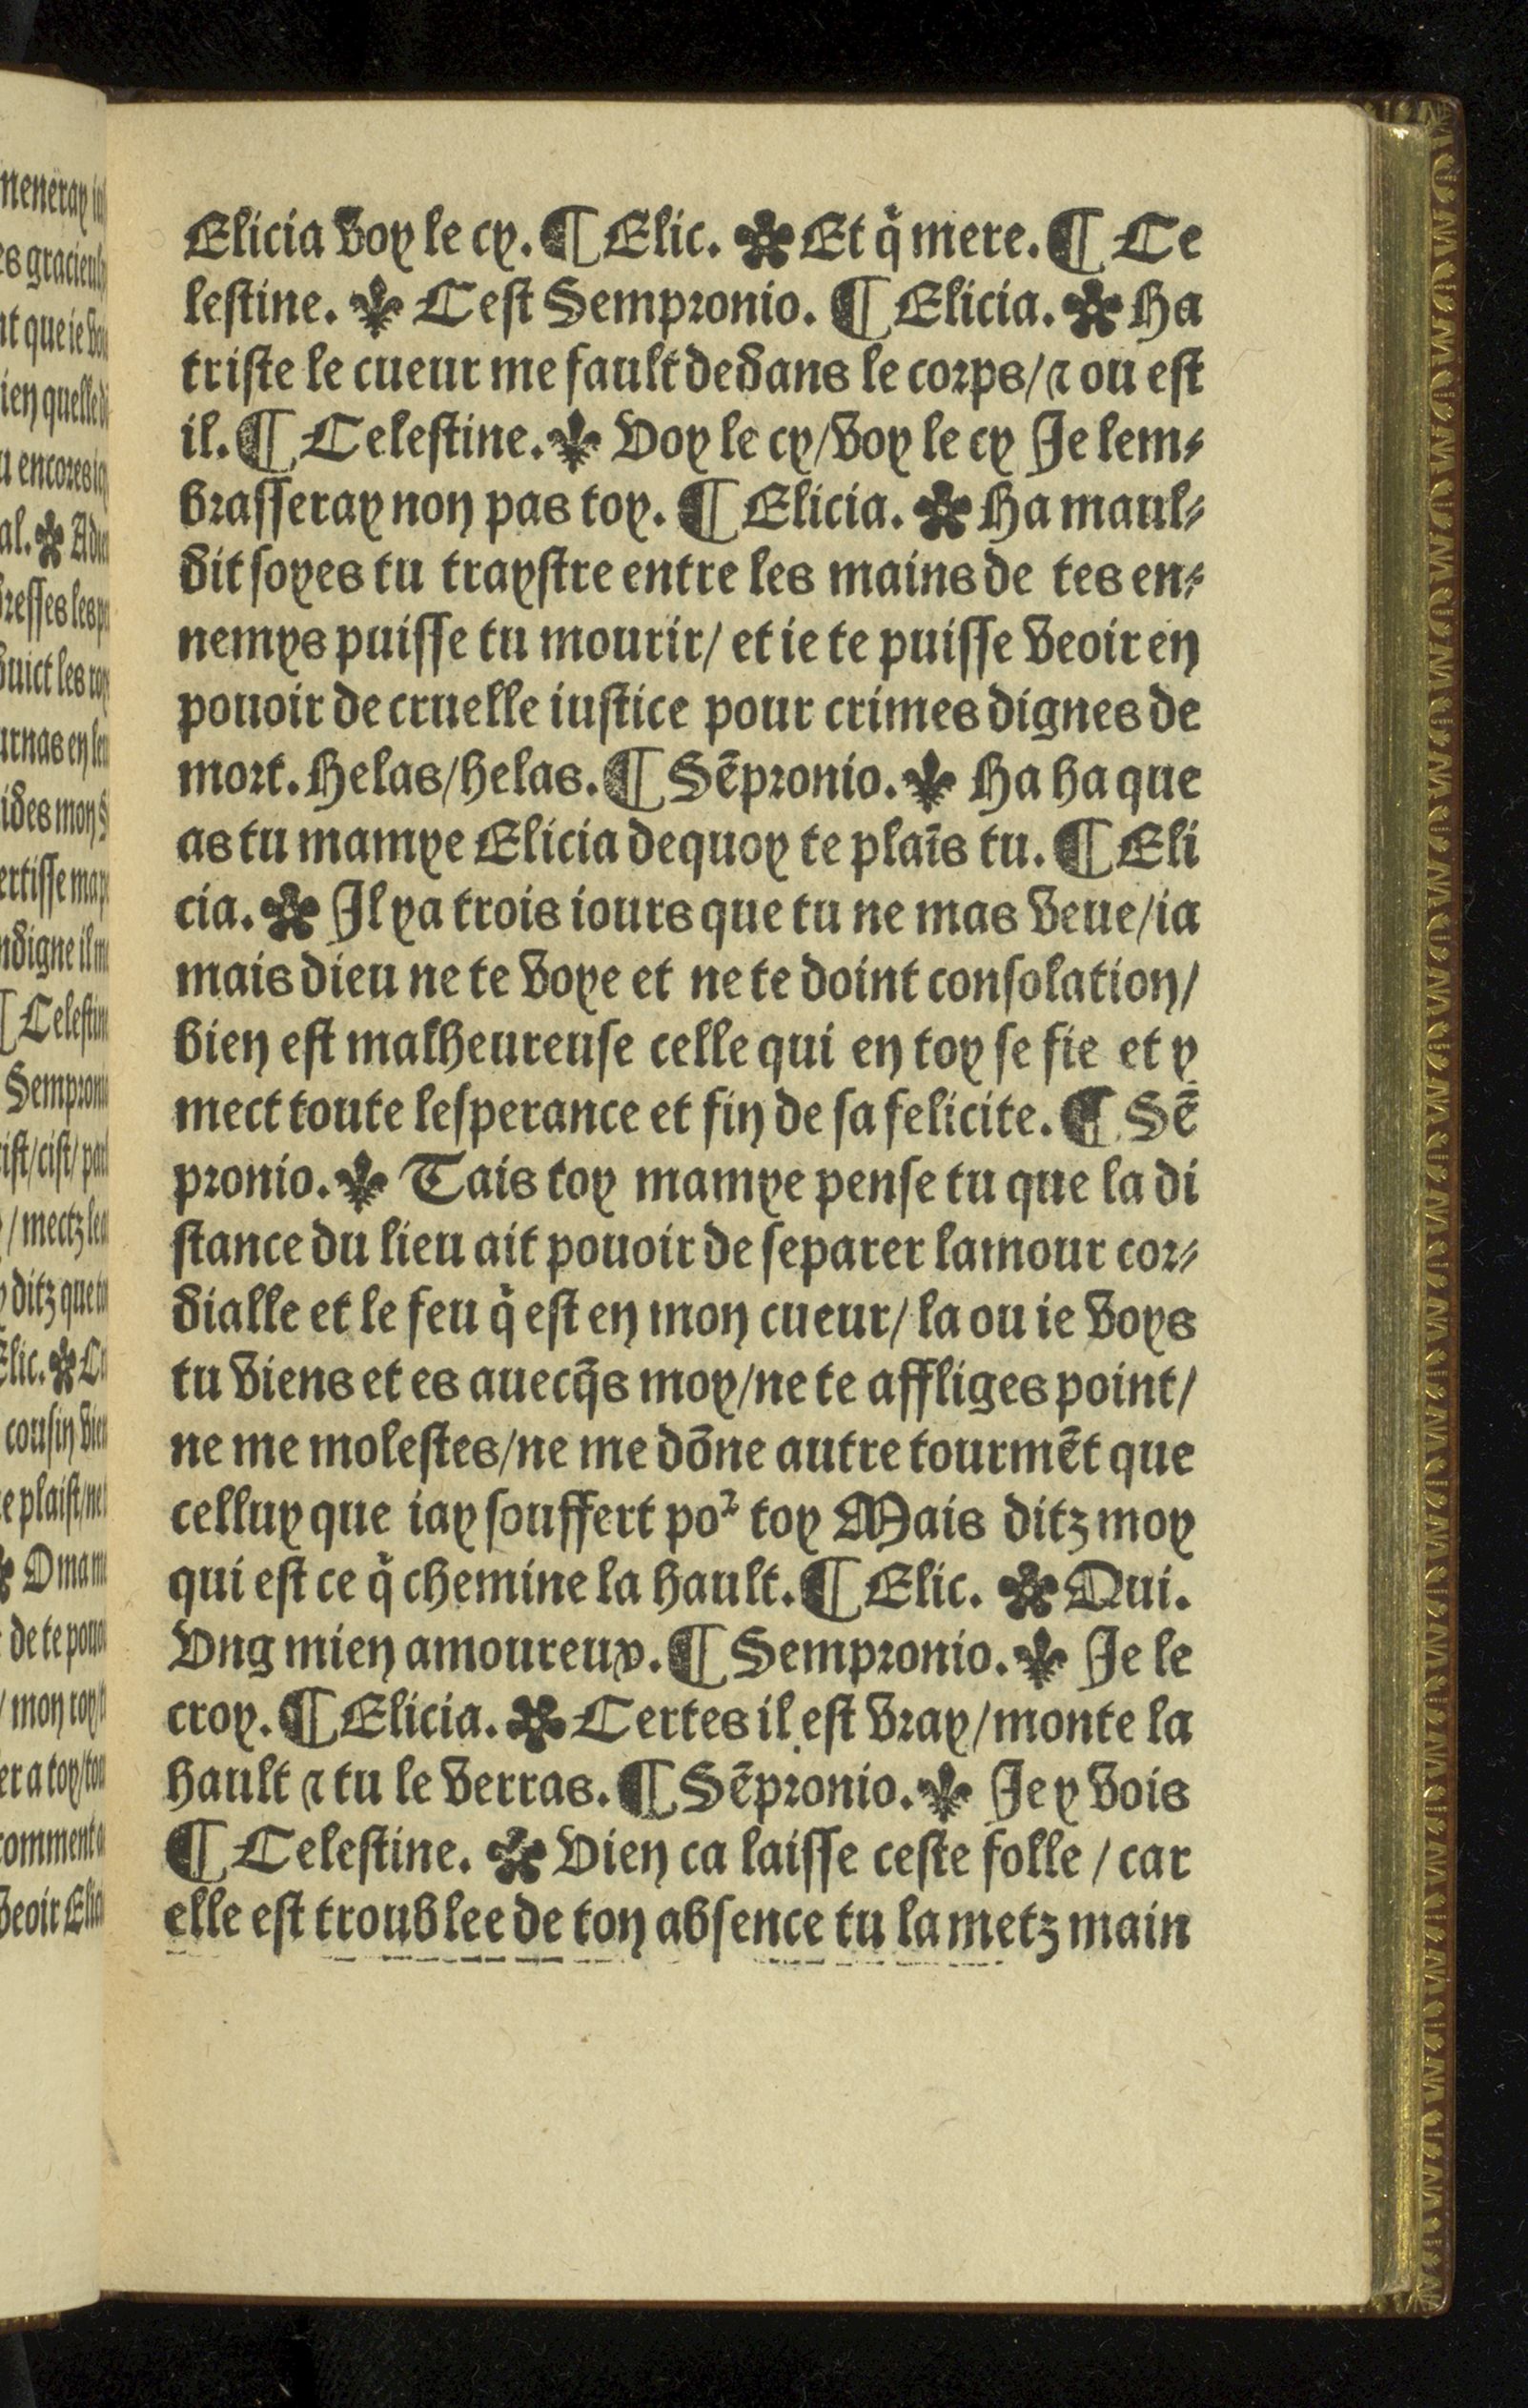 Elicia voy le cy. ¶ Elic. ✿ Et q̇ mere. ¶ Ce
lestine. ⚜ Cest Sempronio. ¶ Elicia. ✿ Ha
triste le cueur me fault dedans le corps/⁊ ou est
il. ¶ Celestine. ⚜ Voy le cy/voy le cy Je lem⸗
brasseray non pas toy. ¶ Elicia. ✿ Ha maul⸗
dit soyes tu traystre entre les mains de tes en⸗
nemys puisse tu mourir/ et ie te puisse veoir en
pouoir de cruelle iustice pour crimes dignes de
mort. Helas/helas. ¶ Sēpronio. ⚜ Ha ha que
as tu mamye Elicia dequoy te plaīs tu. ¶ Eli
cia. ✿ Il ya trois iours que tu ne mas veue/ia
mais dieu ne te voye et ne te doint consolation/
bien est malheureuse celle qui en toy se fie et y
mect toute lesperance et fin de sa felicite. ¶ Sē
pronio. ⚜ Tais toy mamye pense tu que la di
stance du lieu ait pouoir de separer lamour cor⸗
dialle et le feu q̇ est en mon cueur/ la ou ie voys
tu viens et es auecq̄s moy/ne te affliges point/
ne me molestes/ne me dōne autre tourmēt que
celluy que iay souffert poꝰ toy Mais ditz moy
qui est ce q̇ chemine la hault. ¶ Elic. ✿ Qui.
Vng mien amoureux. ¶ Sempronio. ⚜ Je le
croy. ¶ Elicia. ✿ Certes il est vray/monte la
hault ⁊ tu le verras. ¶ Sēpronio. ⚜ Je y vois
¶ Celestine. ✿ Vien ca laisse ceste folle / car
elle est troublee de ton absence tu la metz main